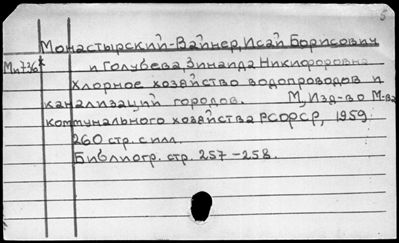 5
Монастырский-Вайнер, Исай Борисович
Ми736к
и Голубева, Зинаида Никифоровна
Хлорное хозяйство водопроводов и
канализаций городов. М, Изд-во М-ва
коммунального хозяйства РСФСР, 1959.
260 стр. с илл.
Библиогр. стр. 257-258.